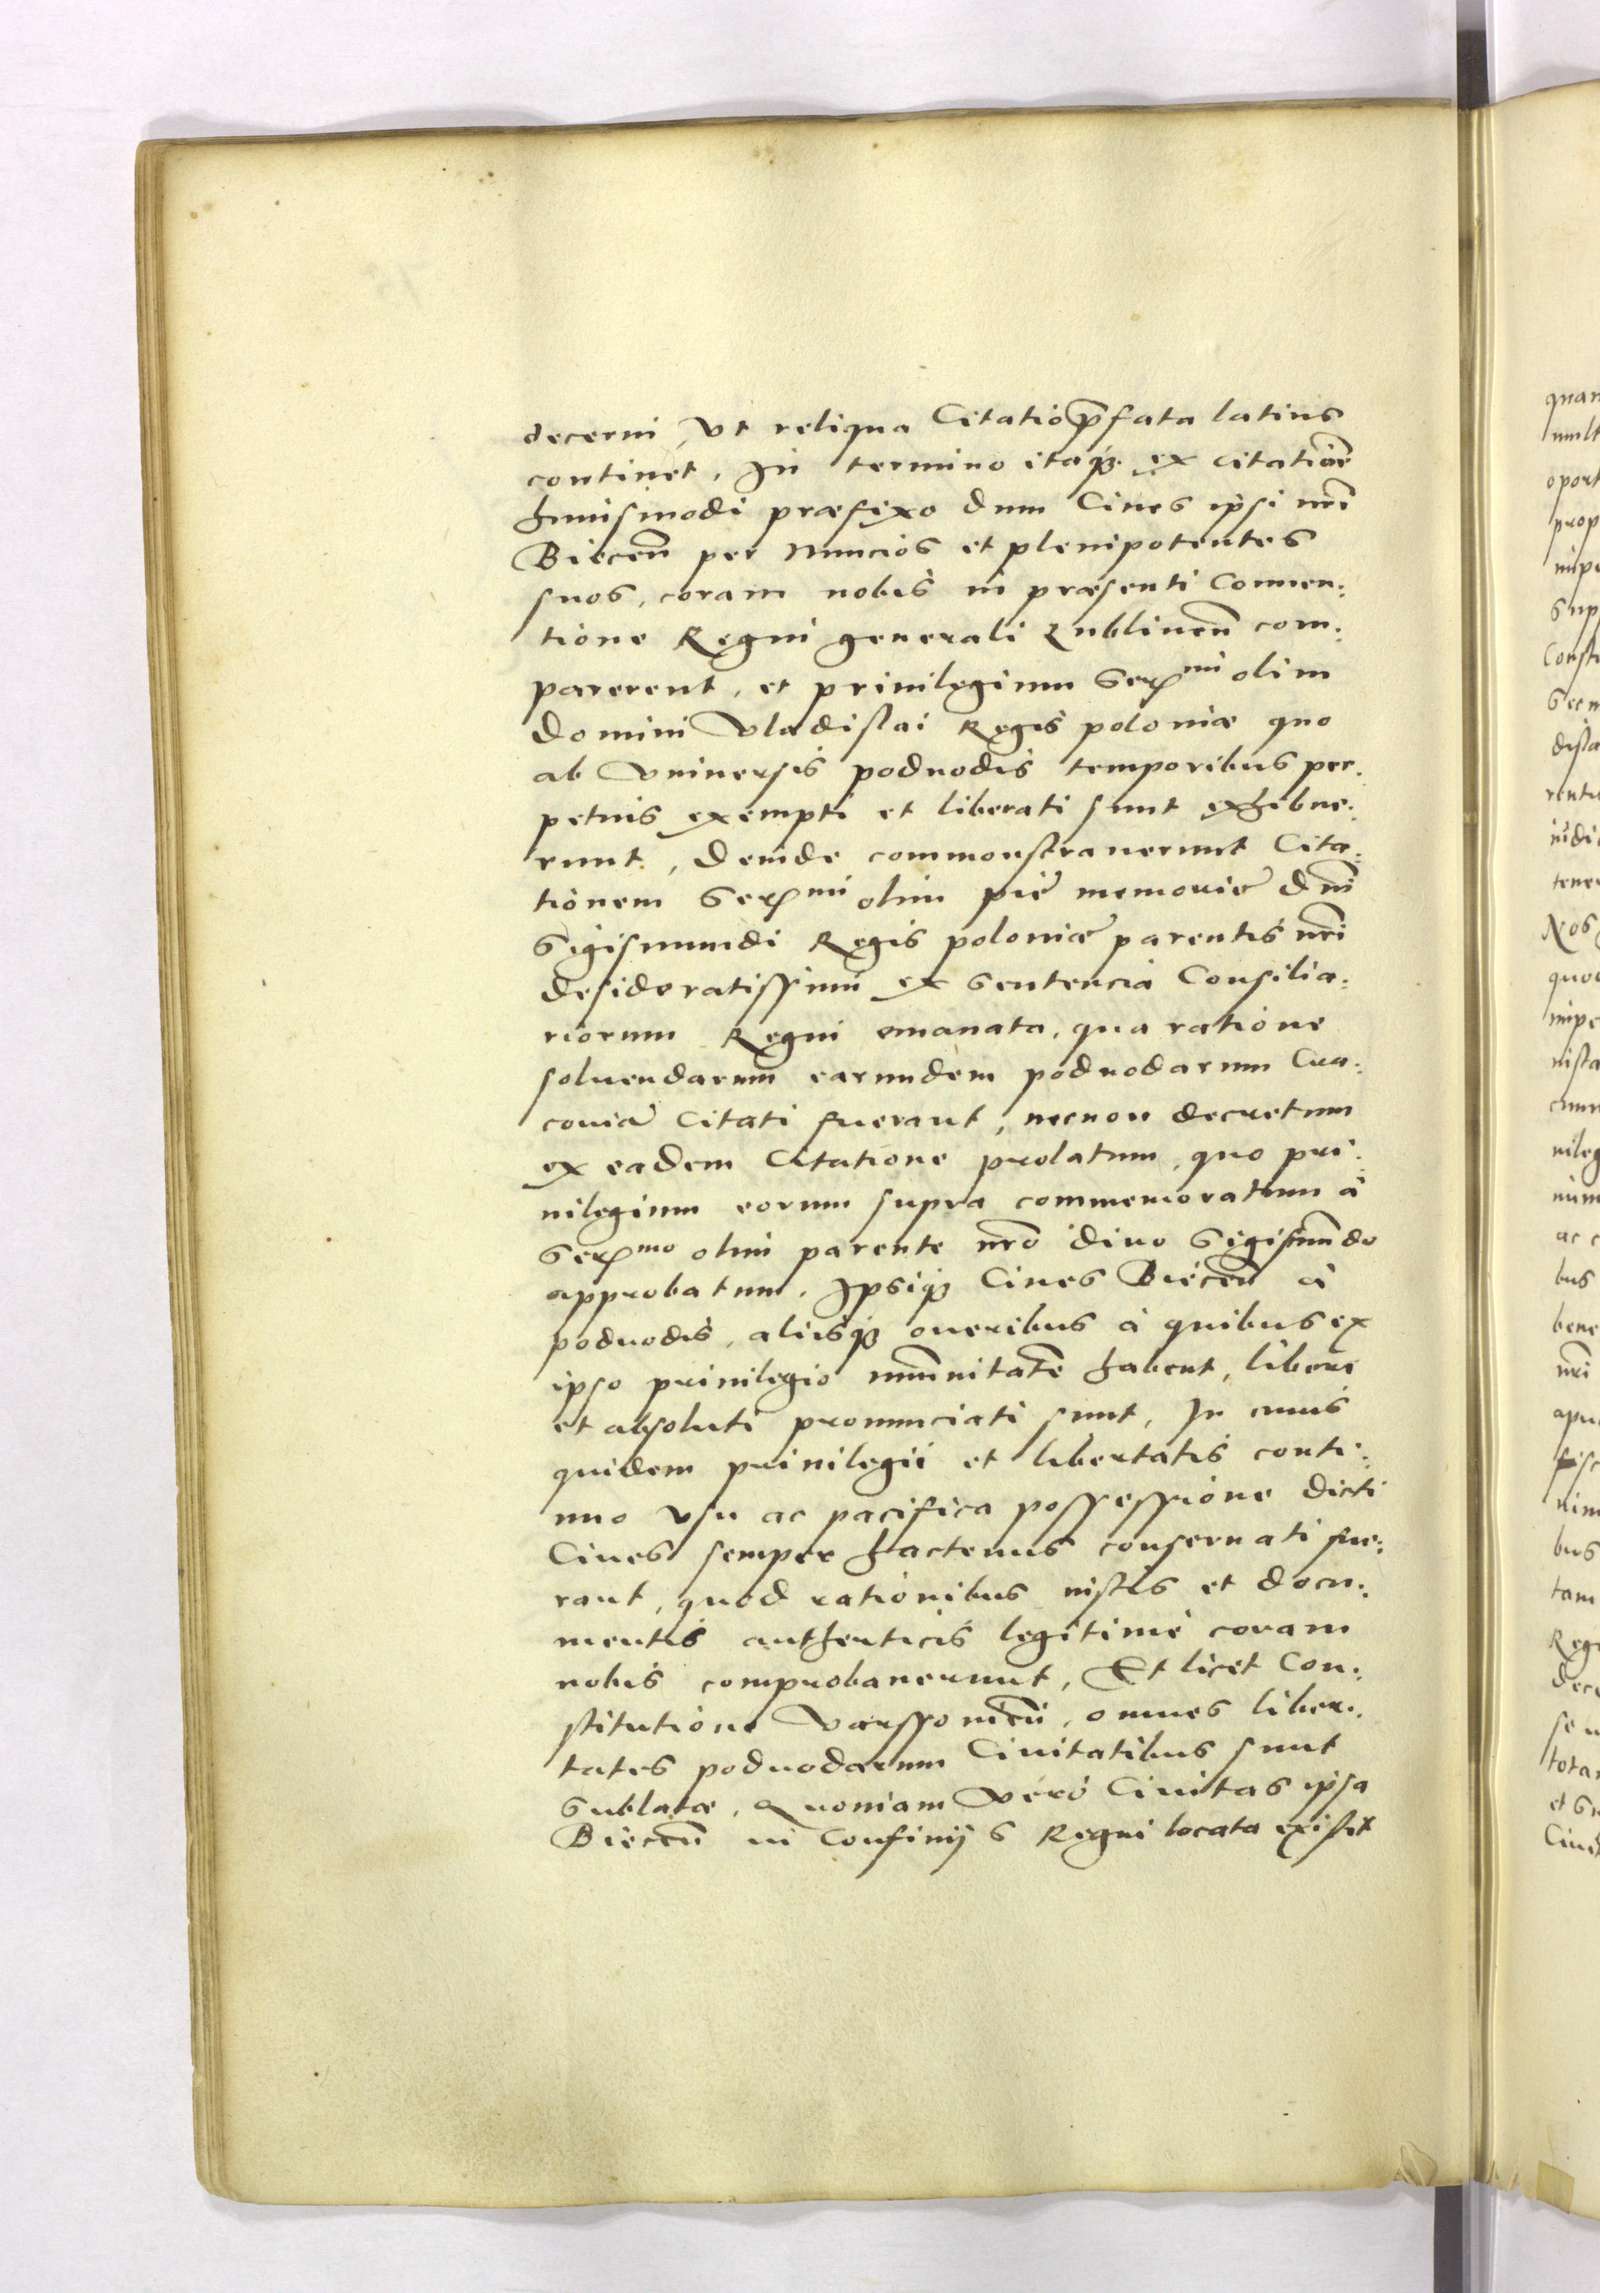 decerni, Vt reliqua Citatio p̄fata latius
continet, In termino itaq̢ ex citatiōe
huiusmodi præfixo dum Ciues ipsi nr̄i
Biecen̄ per Nuncios et plenipotentes
suos, coram nobis in præsenti Conuen:
tione Regni generali Lublinen̄ com:
parerent, et priuilegium Ser^mi olim
Domini Vladislai Regis poloniæ quo
ab Vniuersis poduodis temporibus per:
petuis exempti et liberati sunt exhibue:
runt, Deinde commonstrauerunt Cita:
tionem Ser^mi olim pię memorię Dn̄i
Sigismundi Regis polonię parentis nr̄i
desideratissimi ex Sentencia Consilia:
riorum Regni emanata, qua ratione
soluendarum earundem poduodarum Cra:
couiā Citati fuerant, necnon decretum
ex eadem Citatione prolatum, quo pri:
uilegium eorum supra commemoratum à
Ser^mo olim parente nr̄o diuo Sigismūdo
approbatum, Ipsiq̢ Ciues Biecen̄ à
poduodis, aliisq̢ oneribus à quibus ex
ipso priuilegio immūnitatē habent, liberi
et absoluti pronunciati sunt, In cuius
quidem priuilegii et libertatis conti:
nuo Vsu ac pacifica possessione dicti
Ciues semper hactenus conseruati fue:
rant, quod rationibus iustis et docu:
mentis authenticis legitimè coram
nobis comprobauerunt, Et licet Con:
stitutione Varssouien̄, omnes liber:
tates poduodarum Ciuitatibus sunt
Sublatæ, Quoniam Verò Ciuitas ipsa
Biecen̄ in Confinijs Regni locata existit